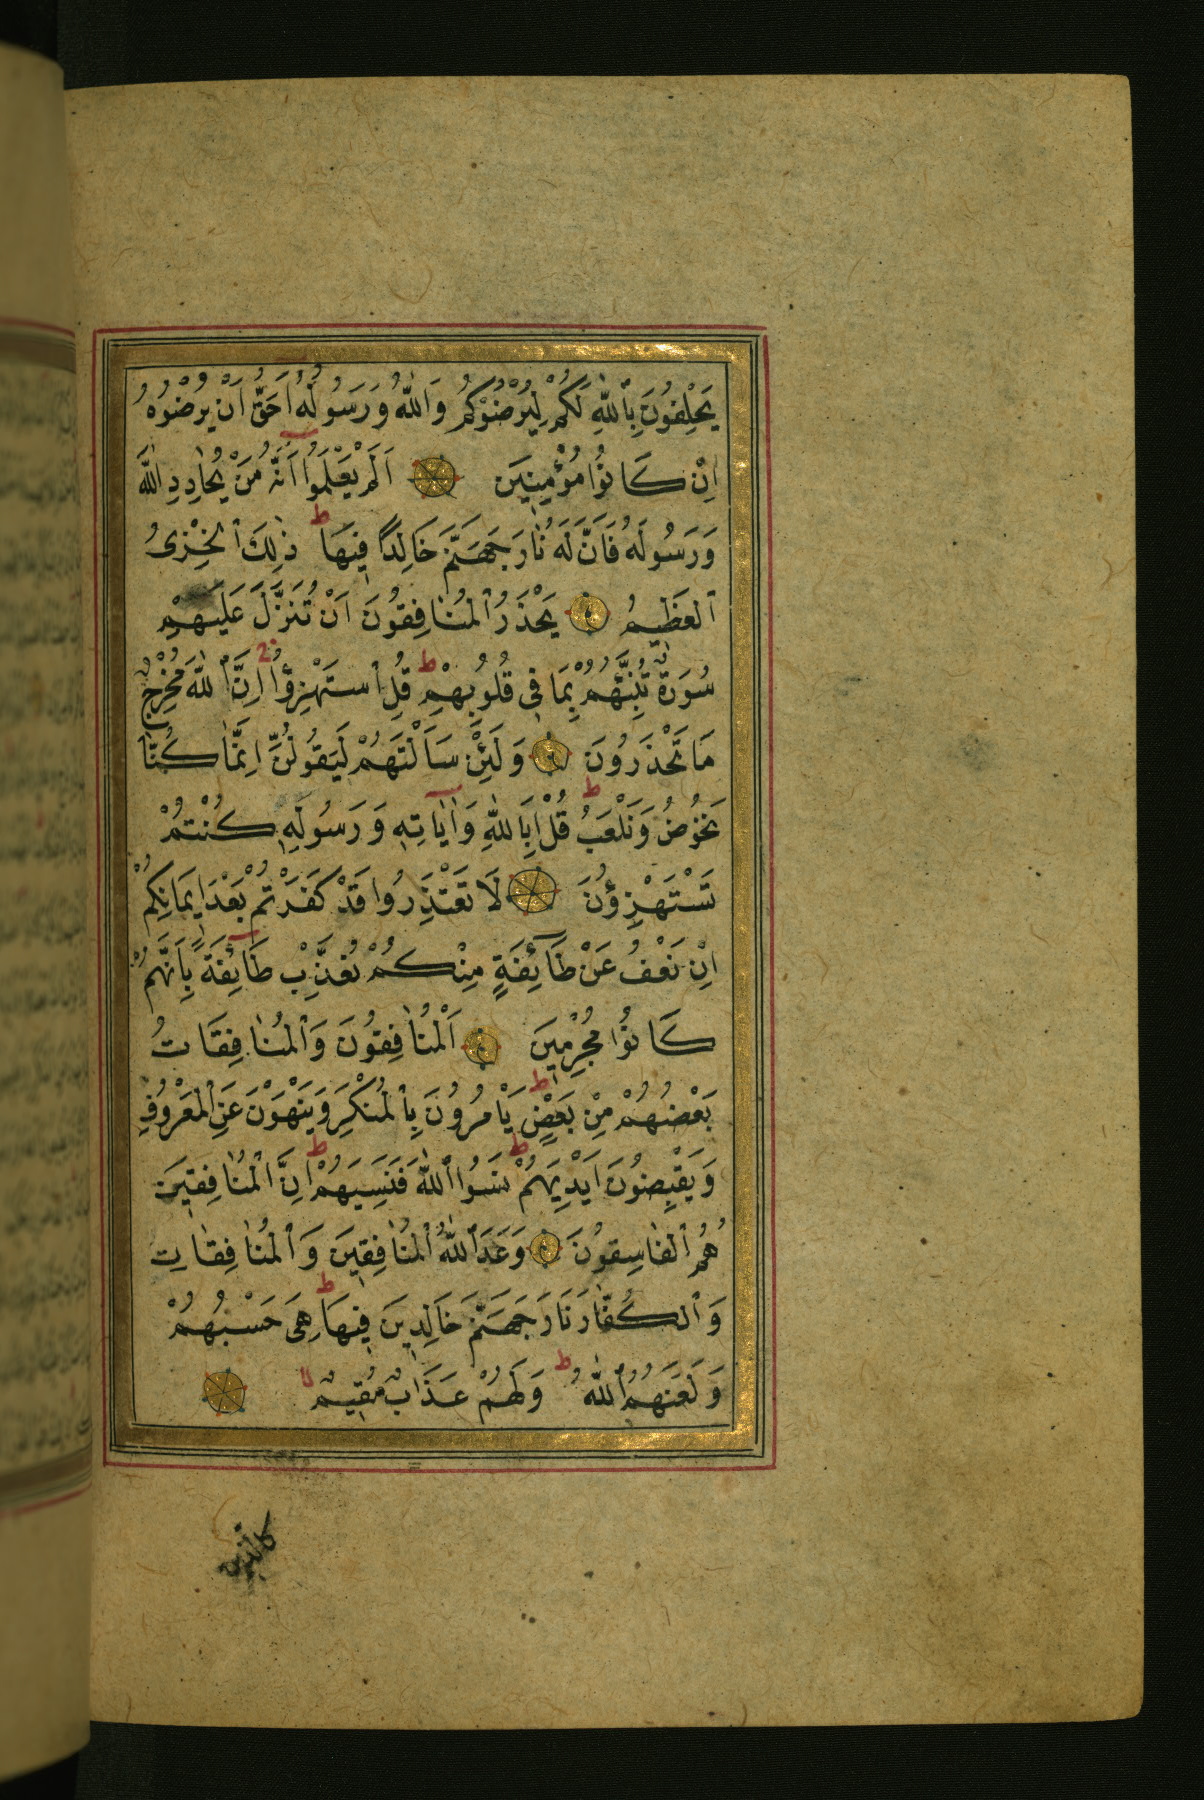 يَحْلِفُونَ بِٱللّٰهِ لَكُمْ لِيُرْضُوْكُمْ وَاللّٰهُ وَرَسُولُهُٓ اَحَقُّ اَنْ يُرْضُوْهُ
اِنْ كَانُوا مُؤْمِنِينَ اَلَمْ يَعْلَمُوا اَنَّهُ مَنْ يُحَادِدِ اللّٰهَ
وَرَسُولَهُ فَاَنَّ لَهُ نَارَ جَهَنَّمَ خَالِدًا فِيهَا ط ذٰلِكَ ٱلْخِزْيُ
ٱلْعَظِيمُ يَحْذَرُ ٱلْمُنَافِقُونَ اَنْ تُنَزَّلَ عَلَيْهِمْ
سُورَةٌ تُنَبِّئُهُمْ بِمَا فِي قُلُوبِهِمْ ط قُلِ ٱسْتَهْزِؤُا اِنَّ ٱللّٰهَ مُخْرِجٌ
مَا تَحْذَرُونَ وَلَئِنْ سَاَلْتَهُمْ لَيَقُولُنَّ اِنَّمَا كُنَّا
نَخُوضُ وَنَلْعَبُ ط قُلْ اَبِاللّٰهِ وَاٰيَاتِهِ وَرَسُولِهِ كُنْتُمْ
تَسْتَهْزِؤُنَ لَا تَعْتَذِرُوا قَدْ كَفَرْتُمْ بَعْدَ اِيمَانِكُمْ
اِنْ نَعْفُ عَنْ طَآئِفَةٍ مِنْكُمْ نُعَذِّبْ طَآئِفَةً بِاَنَّهُمْ
كَانُوا مُجْرِمِينَ اَلْمُنَافِقُونَ وَٱلْمُنَافِقَاتُ
بَعْضُهُمْ مِنْ بَعْضٍ ط يَاْمُرُونَ بِٱلْمُنْكَرِ وَيَنْهَوْنَ عَنِ ٱلْمَعْرُوفِ
وَيَقْبِضُونَ اَيْدِيَهُمْ ط نَسُوا ٱللّٰهَ فَنَسِيَهُمْ ط اِنَّ ٱلْمُنَافِقِينَ
هُمُ ٱلْفَاسِقُونَ وَعَدَ ٱللّٰهُ ٱلْمُنَافِقِينَ وَٱلْمُنَافِقَاتِ
وَٱلْكُفَّارَ نَارَ جَهَنَّمَ خَالِدِينَ فِيهَا ط هِيَ حَسْبُهُمْ
وَلَعَنَهُمُ ٱللّٰهُ ط وَلَهُمْ عَذَابٌ مُقِيمٌ لا
كالذين